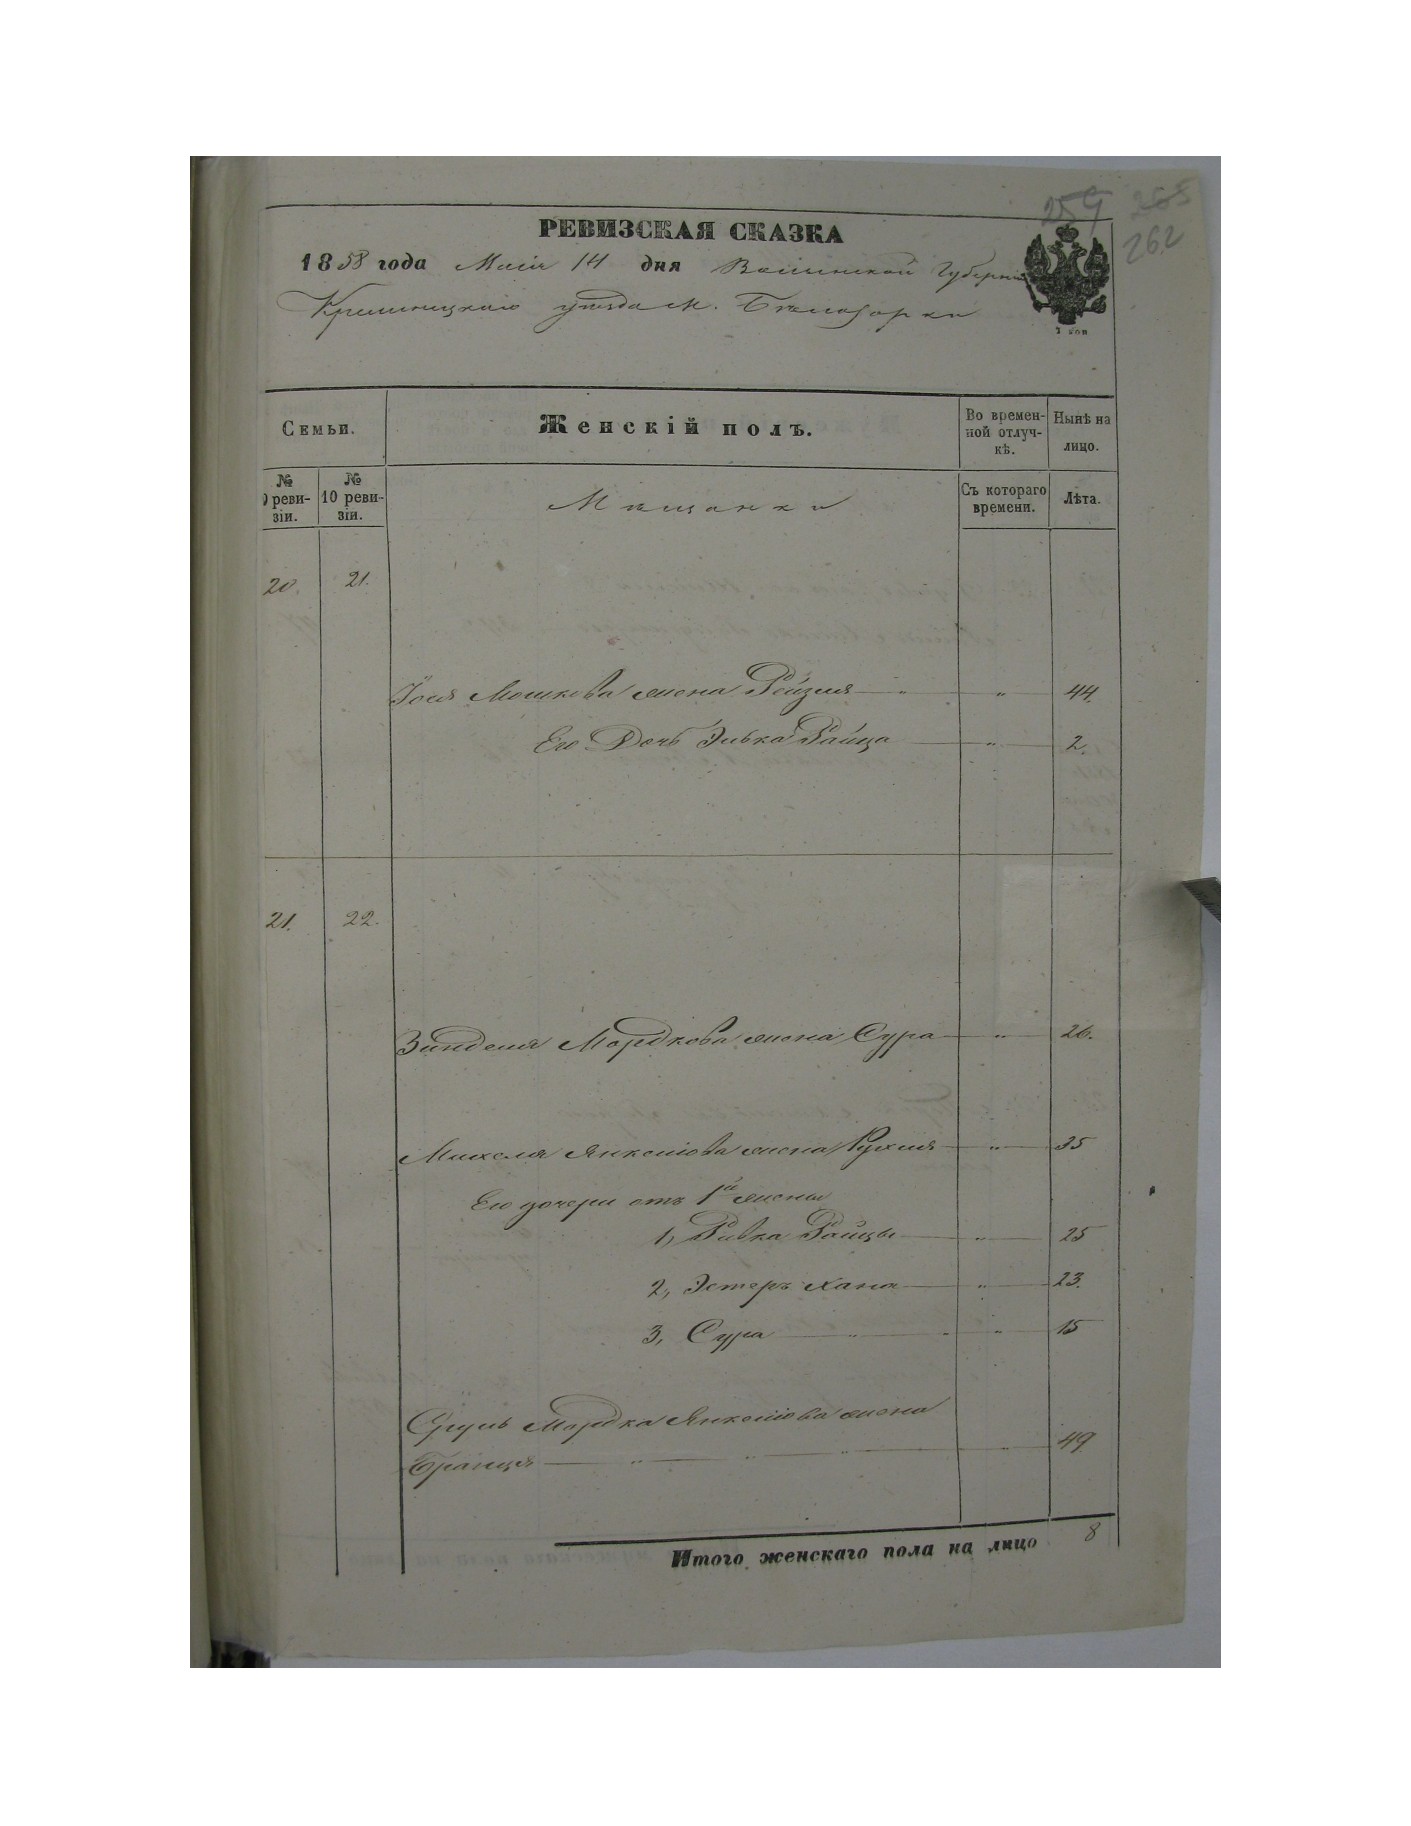 259 265
262
РЕВИЗСКАЯ СКАЗКА
1858 года Маія 14 дня Волынской Губерніи
Кременецкаго уѣзда м. Бѣлозорки
1 коп
Семьи.
Женскій полъ.
Во времен-
ной отлуч-
кѣ.
Нынѣ на
лицо.
№
9 реви-
зіи.
№
10 реви-
зіи.
Мѣщанки
Съ котораго
времени.
Лѣта.
20. 21.
Іося Мошкова жена Рейзля — „ — „ — 44.
Его Дочь Элька Райца — „ — 2.
21. 22.
Зинделя Мордкова жена Сура — „ — 26.
Михеля Янкеліова жена Рухля — „ — 35
Его дочери отъ 1й жены
1, Ривка Райцы — „ — 25
2, Эстеръ Хана — „ — 23.
3, Сура — „ — „ — 15
Сруль Мордка Янкеліова жена
Бранця — „ — „ — „ — „ — 49.
Итого женскаго пола на лицо 8